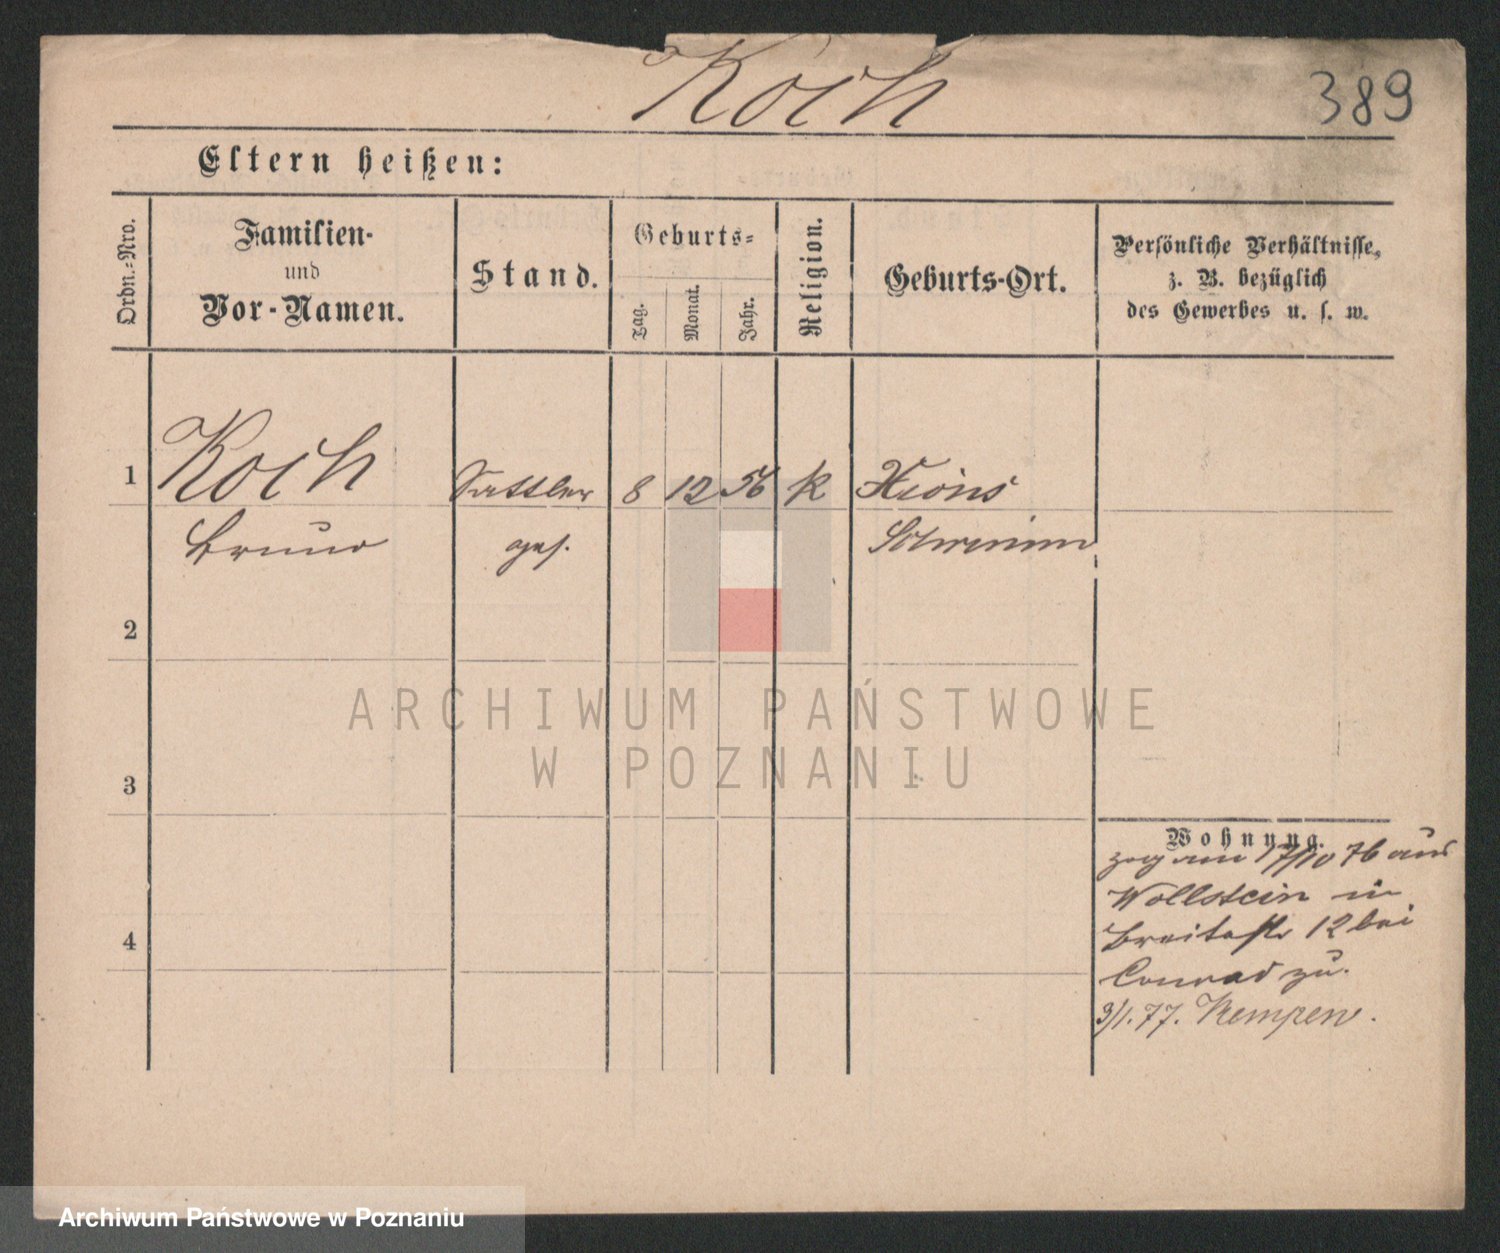 Koch
389
Eltern heißen:
Ordn.-Nro.
Familien-
und
Vor-Namen.
Stand.
Geburts-
Tag.
Monat.
Jahr.
Religion.
Geburts-Ort.
Persönliche Verhältnisse,
z. B. bezüglich
des Gewerbes u. s. w.
1
Koch
Sattler
8
12
56
K
Xions
Bruno
ges.
Schrimm
2
ARCHIWUM PAŃSTWOWE
W POZNANIU
3
Wohnung.
zog am 17/10 76 aus
Wollstein in
Breitestr 12 bei
Conrad zu.
3/1. 77. Kempen.
4
Archiwum Państwowe w Poznaniu